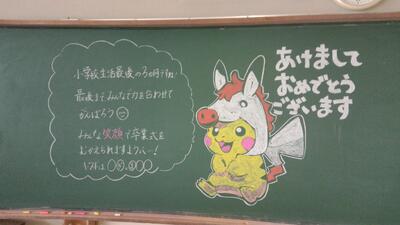 小学校生活最後の3ヵ月ですね!
最後までみんなで力を合わせて
がんばろう
みんな笑顔で卒業式を
むかえられますように…!
あけまして
おめでとう
ございます